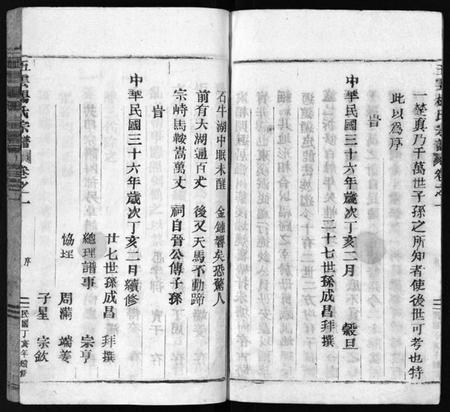 五雲楊氏宗譜 卷之一
一莖真乃千萬世子孫之所知者使後世可考也特
此以為序
旹
中華民國三十六年歲次丁亥二月 穀旦
二十七世孫成昌拜撰
石牛湖中眠未醒 金鐘響矣恐驚人
前有大湖通百丈 後又天馬不動蹄
宗峙馬鞍嵩萬丈 祠自晉公傳子孫
旹
中華民國三十六年歲次丁亥二月續修
廿七世孫成昌 拜撰
總理譜事 宗亨
協理 周 瑞姜
子星 宗欽
五雲楊氏宗譜 卷之一 序 民國丁亥年續修